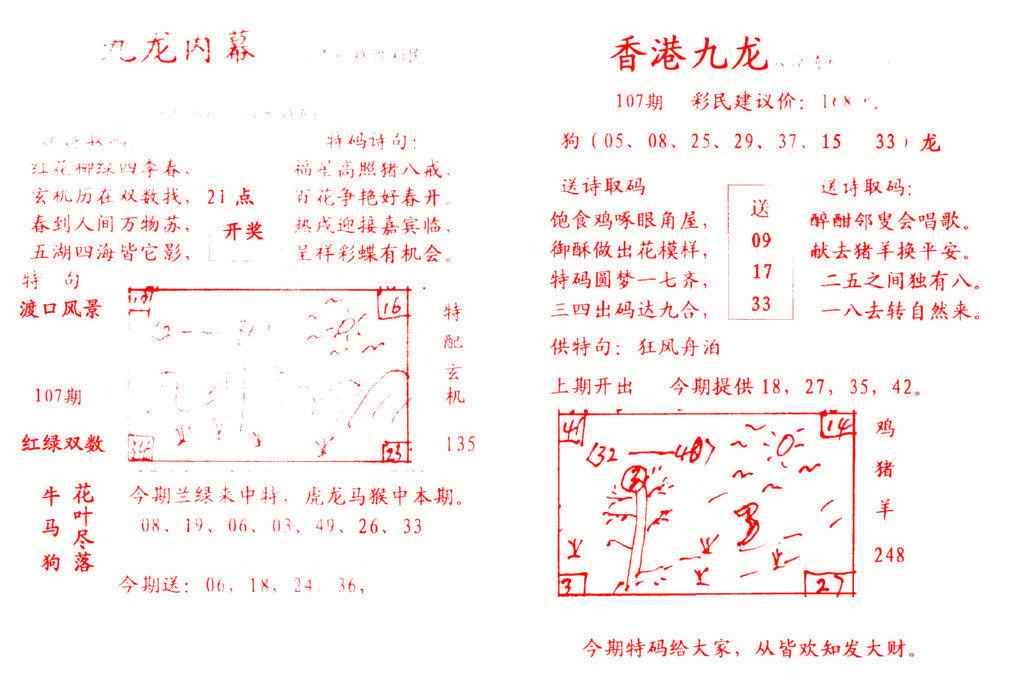 九龙内幕
特码诗句:
红花柳绿四季春,
玄机历在双数找,
春到人间万物苏,
五湖四海皆它影,
21点
开奖
福星高照猪八戒,
百花争艳好春开。
热戌迎接嘉宾临,
呈祥彩蝶有机会。
特 句
渡口风景
107期
红绿双数
16
23
特配玄机
135
牛马狗
花叶尽落
今期兰绿来中特, 虎龙马猴中本期。
08、19、06、03、49、26、33
今期送: 06, 18, 24 36,
香港九龙
107期 彩民建议价:
狗(05、08、25、29、37、15 33)龙
送诗取码
饱食鸡啄眼角屋,
御酥做出花模样,
特码圆梦一七齐,
三四出码达九合,
送
09
17
33
送诗取码:
醉酣邻叟会唱歌。
献去猪羊换平安。
二五之间独有八。
一八去转自然来。
供特句: 狂风舟泊
上期开出 今期提供18, 27, 35, 42。
41
14
3
27
鸡
猪
羊
248
今期特码给大家, 从皆欢知发大财。